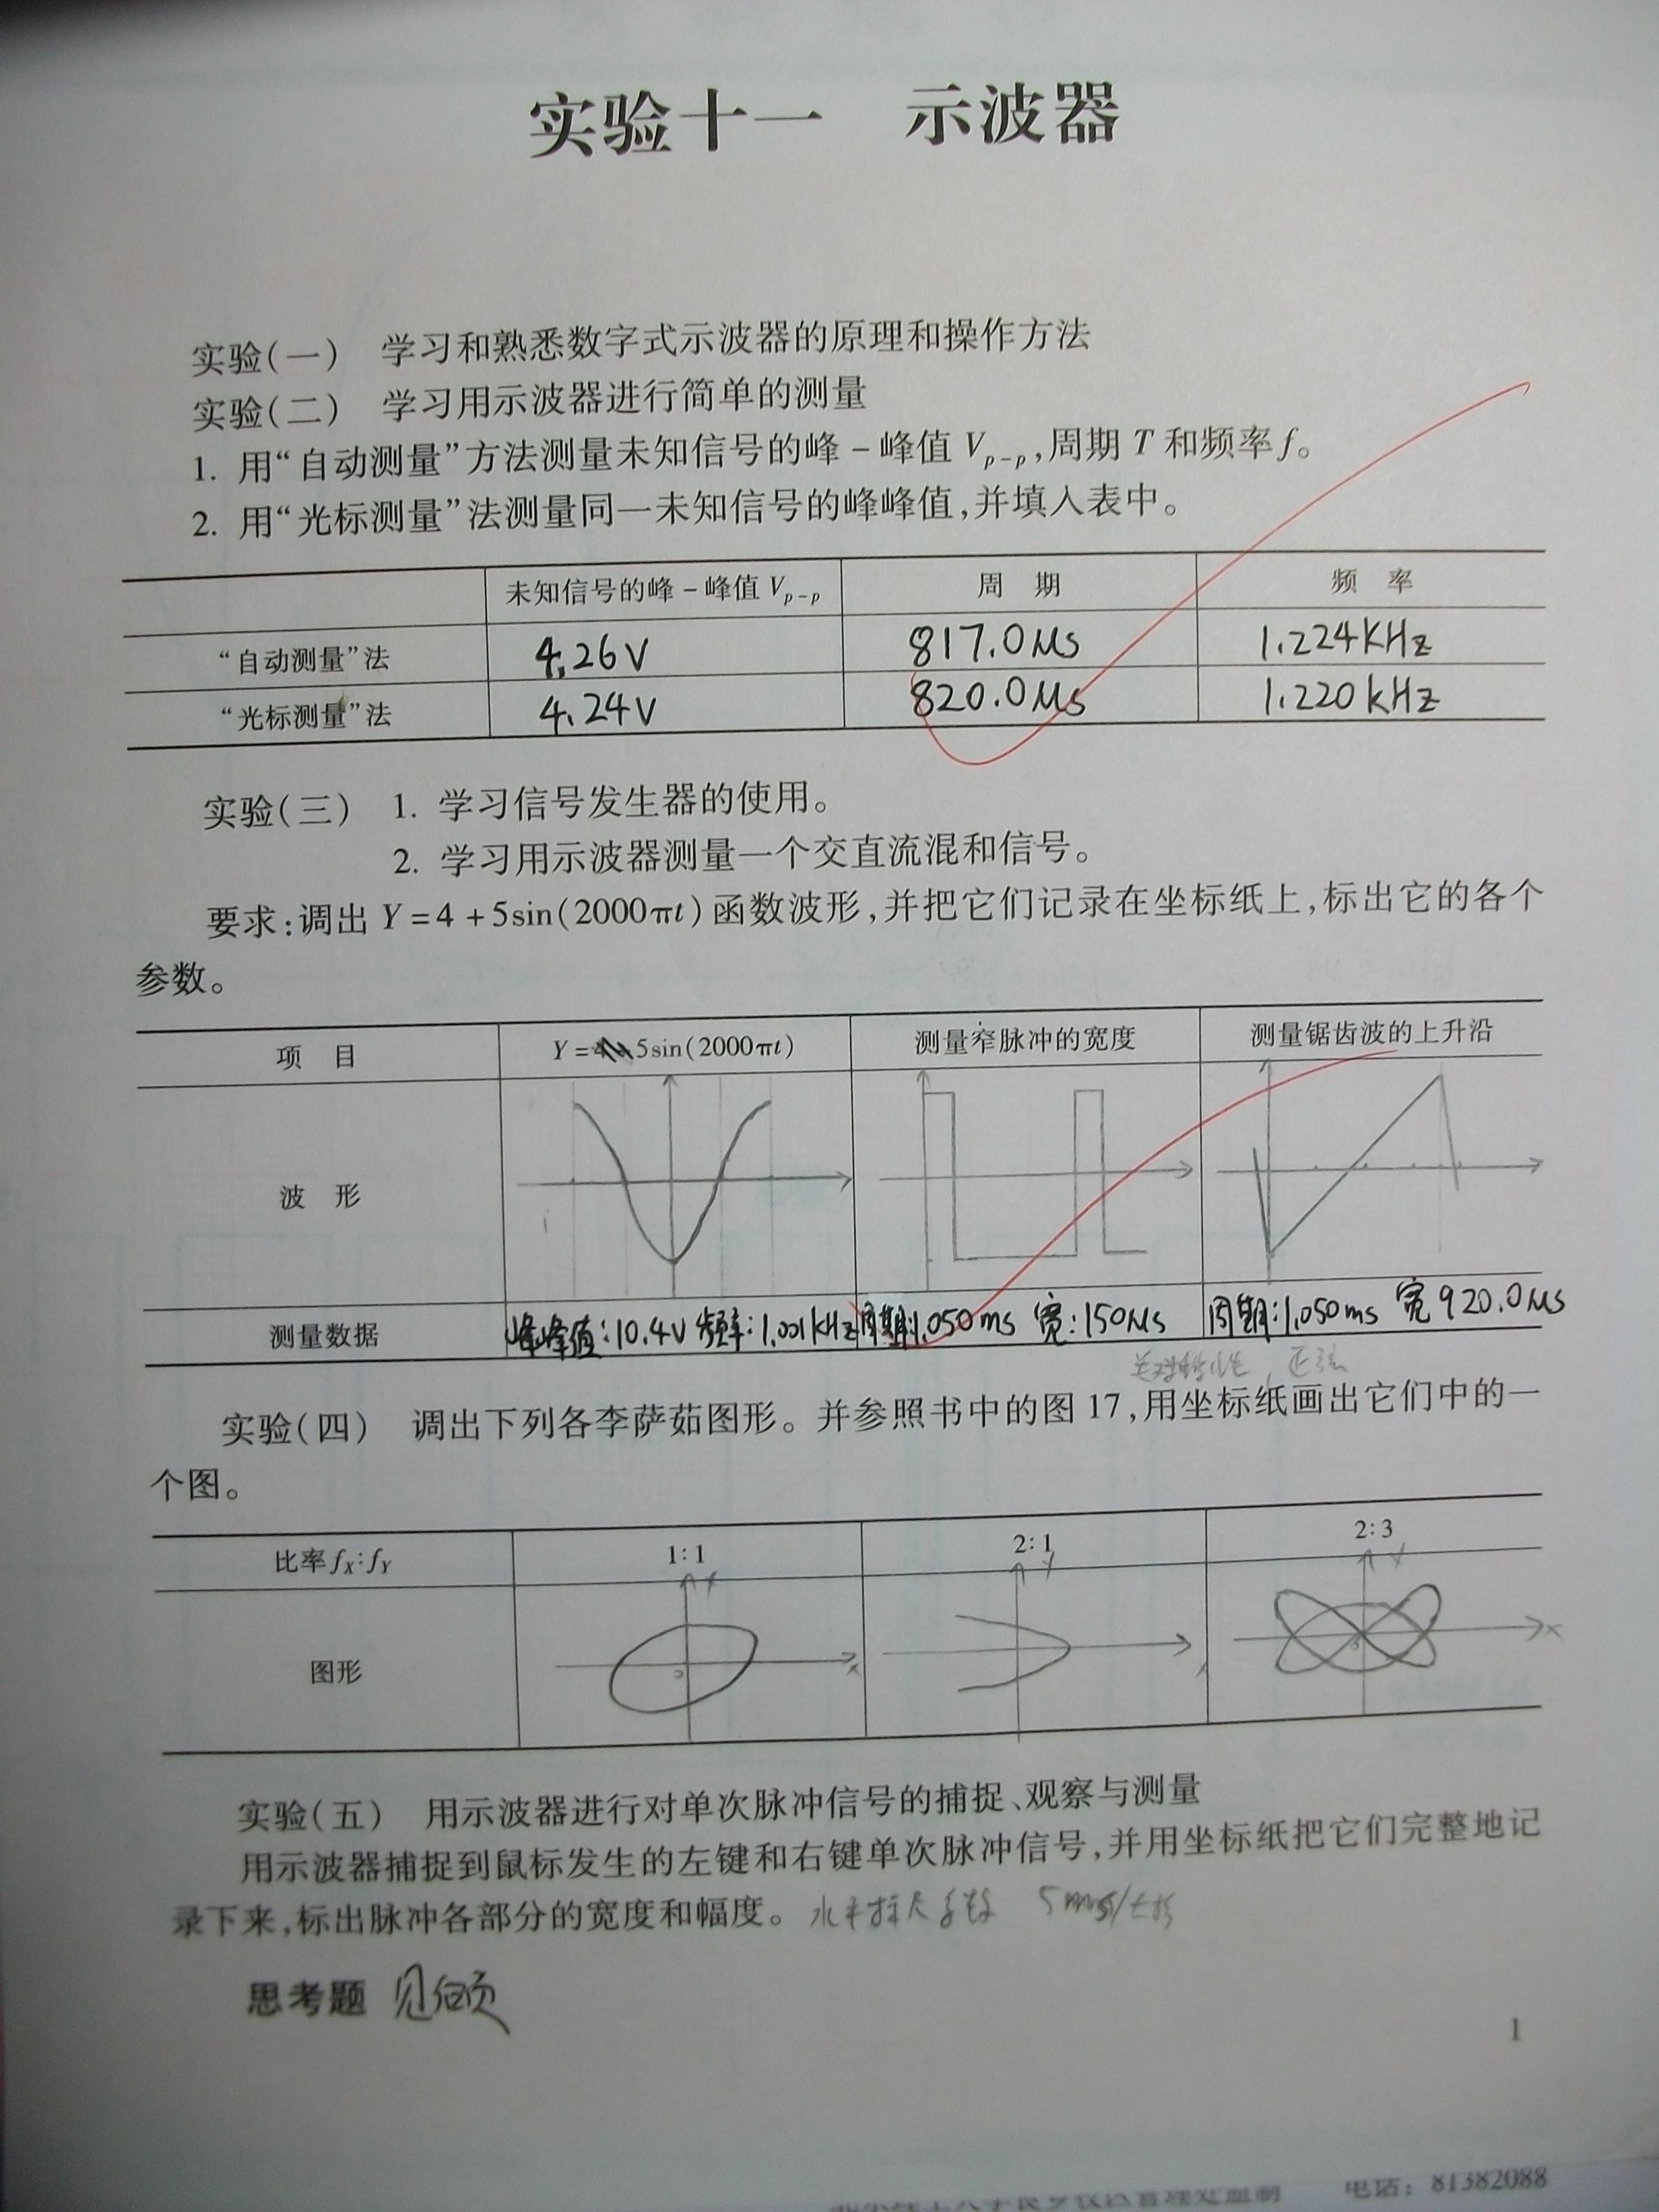 实验十一 示波器
实验(一) 学习和熟悉数字式示波器的原理和操作方法
实验(二) 学习用示波器进行简单的测量
1. 用“自动测量”方法测量未知信号的峰－峰值 Vp-p,周期 T 和频率 f。
2. 用“光标测量”法测量同一未知信号的峰峰值,并填入表中。
未知信号的峰－峰值 Vp-p 周 期 频 率
“自动测量”法 4.26V 817.0μs 1.224KHz
“光标测量”法 4.24V 820.0μs 1.220kHz
实验(三) 1. 学习信号发生器的使用。
2. 学习用示波器测量一个交直流混和信号。
要求:调出 Y=4+5sin(2000πt)函数波形,并把它们记录在坐标纸上,标出它的各个
参数。
项 目 Y=5sin(2000πt) 测量窄脉冲的宽度 测量锯齿波的上升沿
波 形
测量数据 峰峰值:10.4V 频率:1.001kHz 周期:1.050ms 宽:150μs 周期:1.050ms 宽920.0μs
正弦
实验(四) 调出下列各李萨茹图形。并参照书中的图 17,用坐标纸画出它们中的一
个图。
比率 fX:fY 1:1 2:1 2:3
Y Y Y
图形 x x
实验(五) 用示波器进行对单次脉冲信号的捕捉、观察与测量
用示波器捕捉到鼠标发生的左键和右键单次脉冲信号,并用坐标纸把它们完整地记
录下来,标出脉冲各部分的宽度和幅度。 水平 5ms/
思考题 见后页
1
电话: 81382088